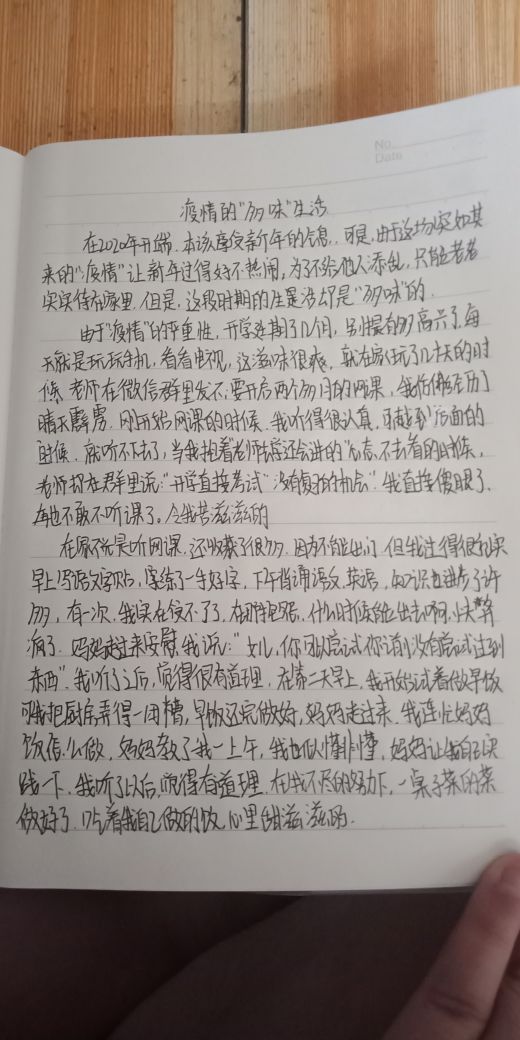 No.
Date
疫情的"多味"生活
在2020年开端，本该享受新年的气息，可是，由于这场突如其
来的"疫情"让新年过得好不热闹，为了不给他人添乱，只能老老
实实待在家里，但是，这段时期的生活却是"多味"的
由于"疫情"的严重性，开学延期了几个月，别提有多高兴了，每
天就是玩玩手机，看看电视，这滋味很爽，就在家玩了几十天的时
候，老师在微信群里发布：要开启两个多月的网课，我仿佛经历了
晴天霹雳，刚开始网课的时候，我听得很认真，可越到后面的
时候，就听不下去了，当我抱着"老师铁定还会讲的"心态，不去看的时候，
老师却在群里说："开学直接考试"没有复习的机会"我直接傻眼了，
再也不敢不听课了。令我苦滋滋的
在家不光是听网课，还收获了很多，因为不能出门，但我过得很充实
早上写语文字帖，字练了一手好字，下午背诵语文，英语，知识也进步了许
多，有一次，我实在受不了了，在那抱怨，什么时候能出去啊，快
疯了，妈妈走过来安慰我说："女儿，你可以尝试你以前没有尝试过到
东西"，我听了之后，觉得很有道理，在第二天早上，我开始试着做早饭
可我把厨房弄得一团糟，早饭还完做好，妈妈走过来，我连忙妈妈
饭怎么做，妈妈教了我一上午，我也似懂非懂，妈妈让我自己实
践一下，我听了以后，觉得有道理，在我不尽的努力下，一桌子菜的菜
做好了，吃着我自己做的饭，心里甜滋滋的。